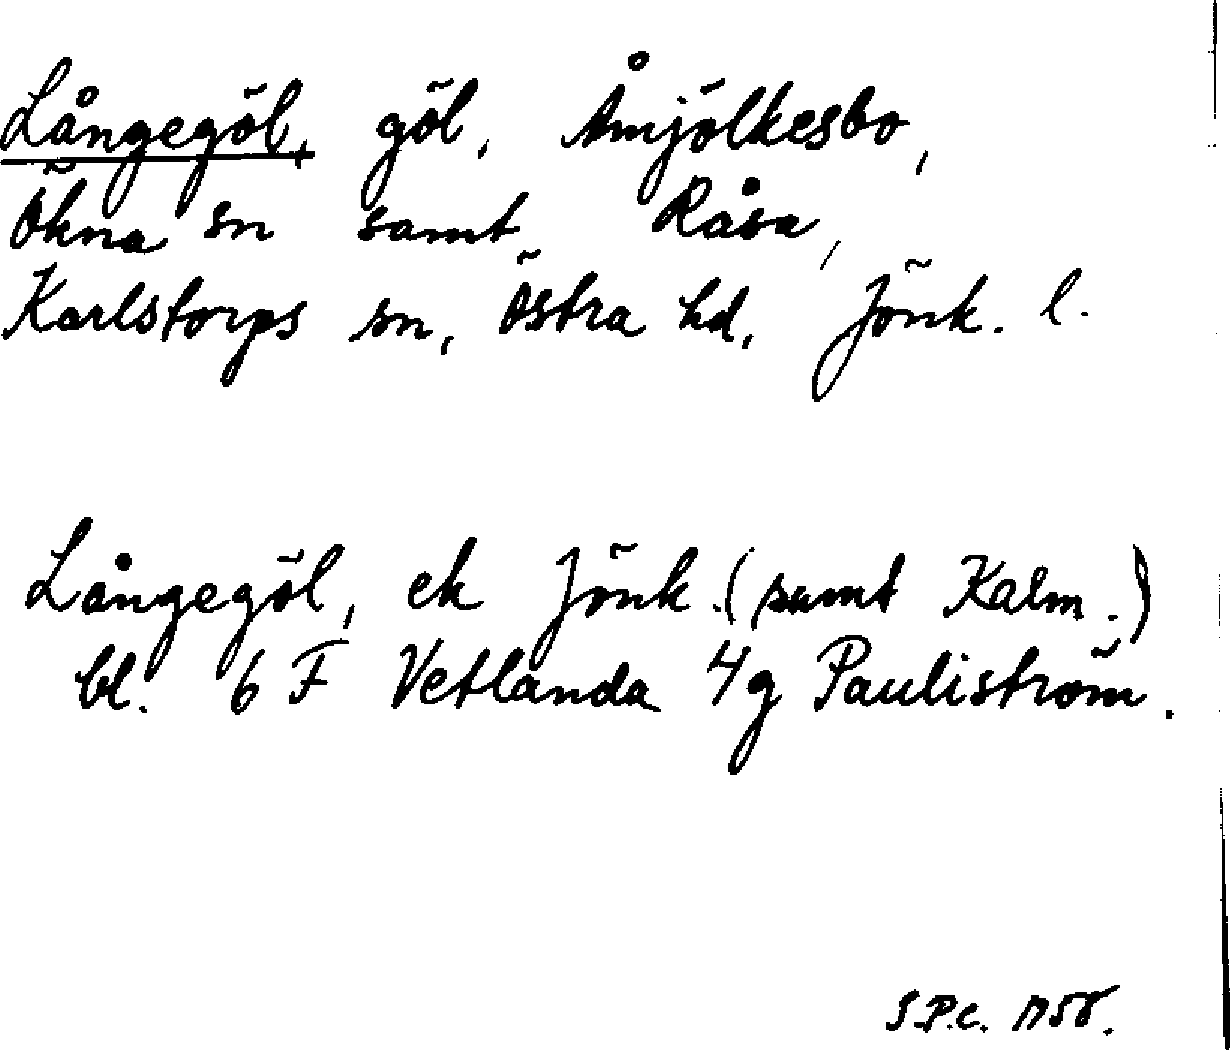 Långegöl, göl, Åmjölkesbo,
Ökna sn samt Råsa,
Karlstorps sn, Östra hd, Jönk. l.
Långegöl, ek Jönk. (samt Kalm.)
bl. 6 F Vetlanda 4g Pauliström.
S.P.C.